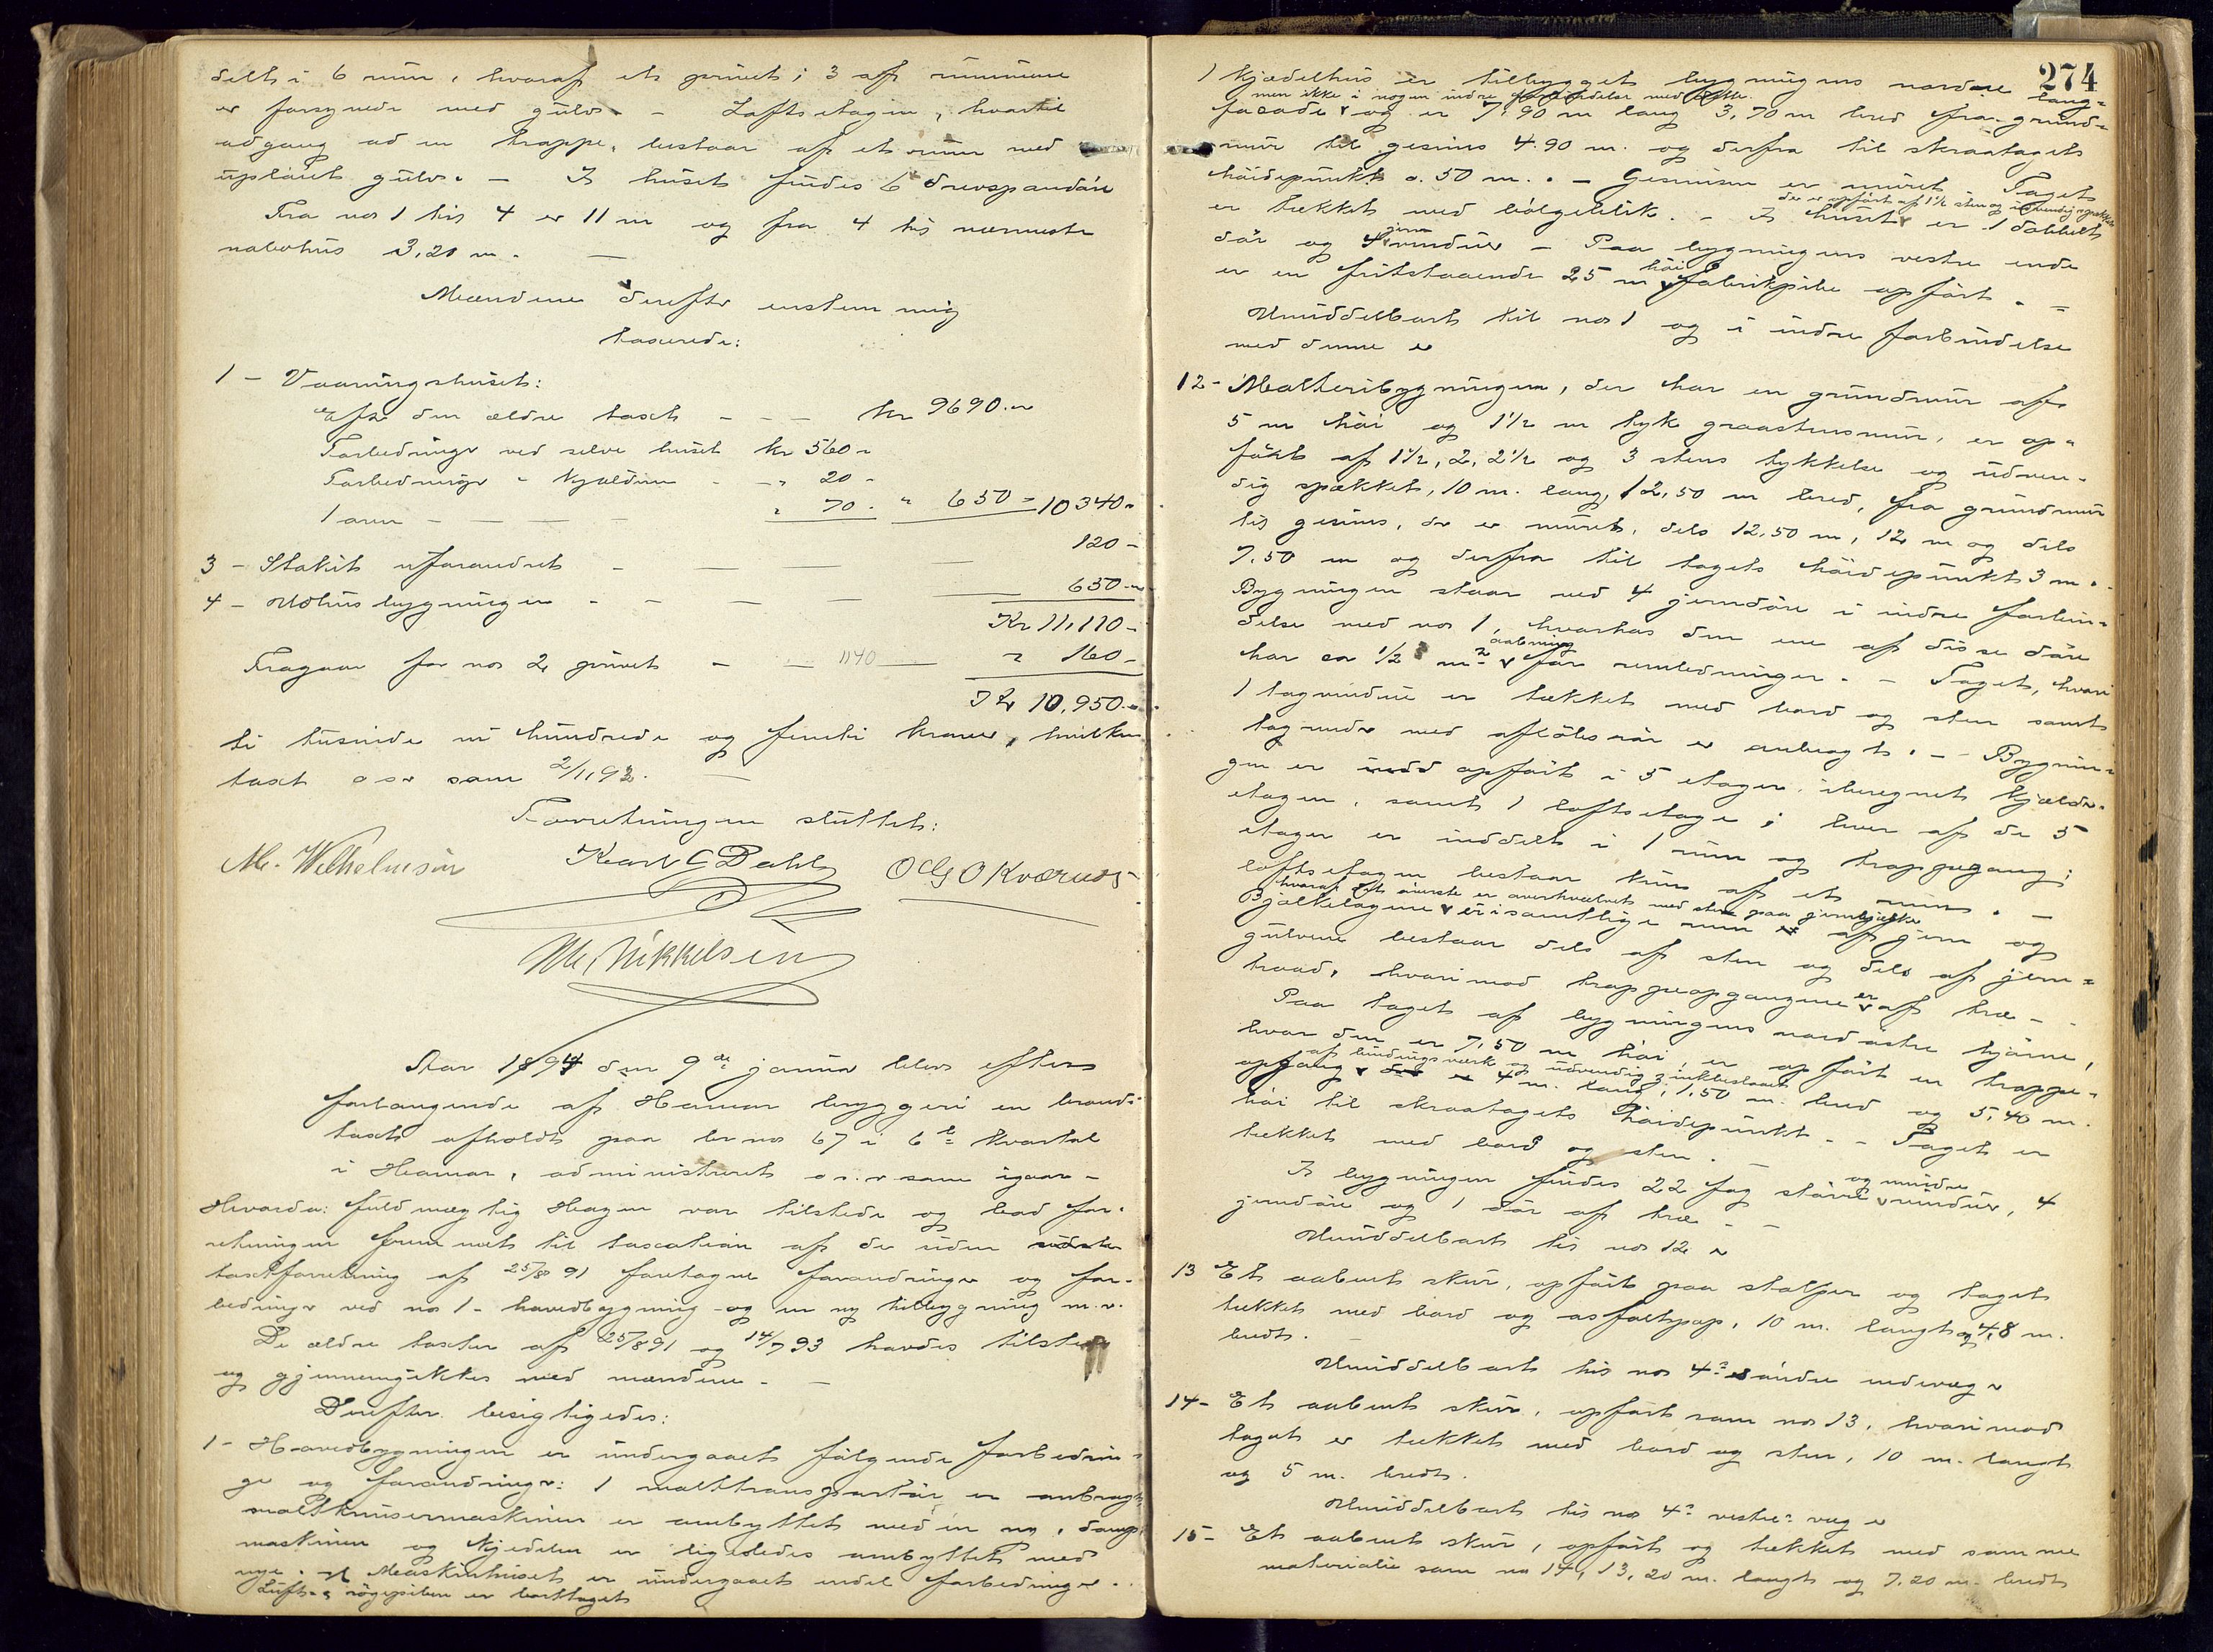 delt i 6 rum, hvoraf et privet; 3 af rummene
er forsynede med gulv. – Loftsetagen, hvortil
adgang ad en trappe, bestaar af et rum med
upløiet gulv. – I huset findes 6 drevspanddøre
Fra no 1 til 4 er 11 m og fra 4 til nærmeste
nabohus 3,20 m. –
Mændene derefter enstemmig
taxerede:
1 – Vaaningshuset:
Efter den ældre taxt – – – kr 9690.–
Forbedringer ved selve huset kr 560 –
Forbedringer " kjælderen – – " 20 –
1 – – – – " 70 . " 650 = 10340 –
3 – Stakit uforandret – – – – 120 –
4 – Udhusbygningen – – – – 650 –
Kr 11,110 –
Fragaar for no 2 privet – – 1140 – " 160 –
Kr 10,950.–
ti tusinde ni hundrede og femti kroner, hvilken
taxt osv som 2/11 93. –
Forretningen sluttet:
M. Wilhelmsen Karl G Dahl O Kværnes
M. Mikkelsen
Aar 1894 den 9de januar blev efter
forlangende af Hamar bryggeri en brand-
taxt afholdt paa br no 67 i 6te kvartal
i Hamar, administreret o.s.v som igaar –
Hvorda: fuldmægtig Hagen var tilstede og bad for-
retningen fremmet til taxation af de siden sidste
taxtforretning af 25/8 91 foretagne forandringer og for-
bedringer ved no 1 – hovedbygning – og en ny tilbygning m.v.
De ældre taxter af 25/8 91 og 14/7 93 havdes tilstede
og gjennemgikkes med mændene. –
Derefter besigtigedes:
1 – Hovedbygningen er undergaaet følgende forbedrin-
ger og forandringer: 1 malttransportør er anbragt,
maltknusermaskinen er ombyttet med en ny, damp-
maskinen og kjedelen er ligeledes ombyttet med
nye. Maskinhuset er undergaaet endel forbedringer.
Luft- & røgepiben er borttaget
274
1 kjedelhus er tilbygget bygningens nordre lang-
men ikke i nogen indre forbindelse med dette.
facade og er 7,90 m lang 3,70 m bred fra grund-
mur til gesims 4.90 m. og derfra til skraatagets
høidepunkt 0.50 m. – Gesimsen er muret. Taget
der er opført af 1½ sten og udvendig spækket
er tækket med bølgeblik. – I huset er 1 dobbelt
jern
dør og 4 vinduer – Paa bygningens vestre ende
høi
er en fritstaaende 25 m fabrikpibe opført. –
Umiddelbart til no 1 og i indre forbindelse
med denne er
12 – Malteribygningen, der har en grundmur af
5 m høi og 1½ m tyk graastensmur, er op-
ført af 1½, 2, 2½ og 3 stens tykkelse og udven-
dig spækket, 10 m. lang, 12,50 m bred, fra grundmur
til gesims, der er muret, dels 12.50 m, 12 m og dels
7.50 m og derfra til tagets høidepunkt 3 m.
Bygningen staar ved 4 jerndøre i indre forbin-
delse med no 1, hvorhos den ene af disse døre
aabning
har ca ½ m2 for remledninger. – Taget, hvori
1 tagvindue er tækket med bord og sten samt
tagrender med afløbsrør er anbragt. – Bygnin-
gen er opført i 5 etager, iberegnet kjælder-
etagen, samt 1 loftsetage; hver af de 5
etager er inddelt i 1 rum og trappegang;
loftsetagen bestaar kun af et rum. –
hvoraf det øverste er overhvælvet med sten paa jernbjælker
Bjælkelagene er i samtlige rum af jern og
gulvene bestaar dels af sten og dels af jern-
traad, hvorimod trappeopgangene er af træ –
Paa taget af bygningens nordøstre hjørne,
hvor den er 7,50 m høi, er opført en trappe-
af bindingsværk og udvendig zinkbeslaaet
opgang 4 m. lang, 1,50 m. bred og 5,40 m.
høi til skraatagets høidepunkt. – Taget er
tækket med bord og sten. –
og mindre
I bygningen findes 22 fag større vinduer, 4
jerndøre og 1 dør af træ. –
Umiddelbart til no 12 er
13 Et aabent skur, opført paa stolper og taget
tækket med bord og asfaltpap, 10 m. langt og 4,8 m.
bredt. –
Umiddelbart til no 4's søndre endevæg er
14 – Et aabent skur, opført som no 13, hvorimod
taget er tækket med bord og sten, 10 m. langt
og 5 m. bredt.
Umiddelbart til no 4's vestre væg er
15 – Et aabent skur, opført og tækket med samme
materialie som no 14, 13,20 m. langt og 7,20 m. bredt